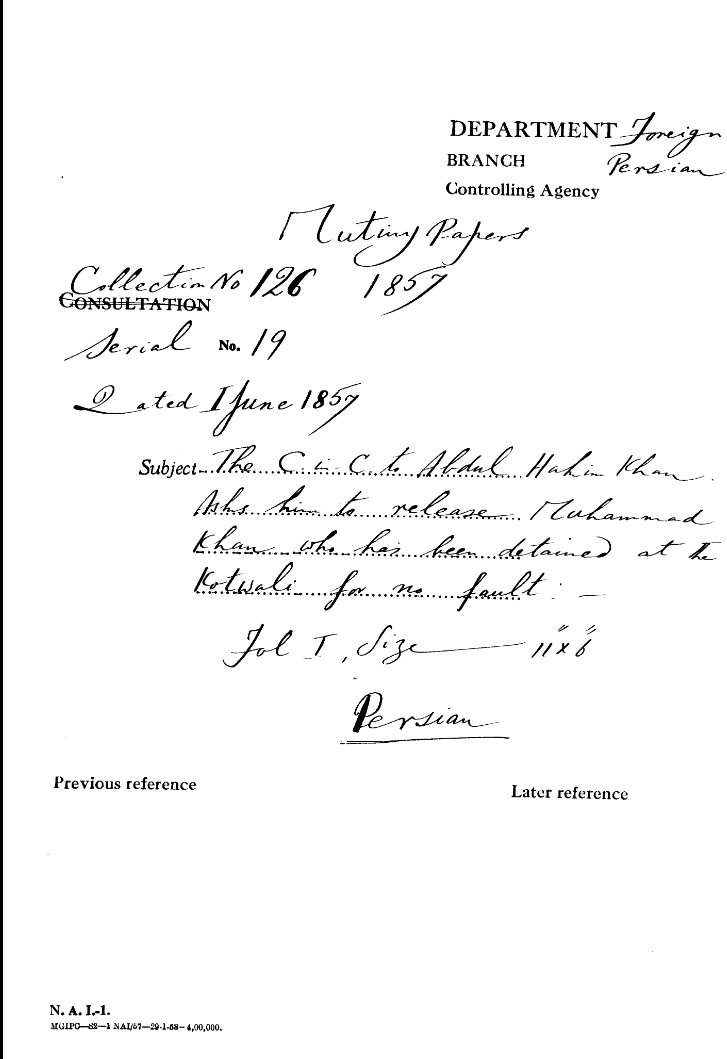 DEPARTMENT Foreign
BRANCH Persian
Controlling Agency
Mutiny Papers
Collection No 126 1857
CONSULTATION
Serial No. 19
Dated 1 June 1857
Subject The C in C to Abdul Hakim Khan.
Asks him to release Muhammad
Khan who has been detained at the
Kotwali for no fault: —
Fol I, Size — 11" x 6"
Persian
Previous reference
Later reference
N. A. I.-1.
MGIPC—S2—1 NAI/57—29-1-58—4,00,000.